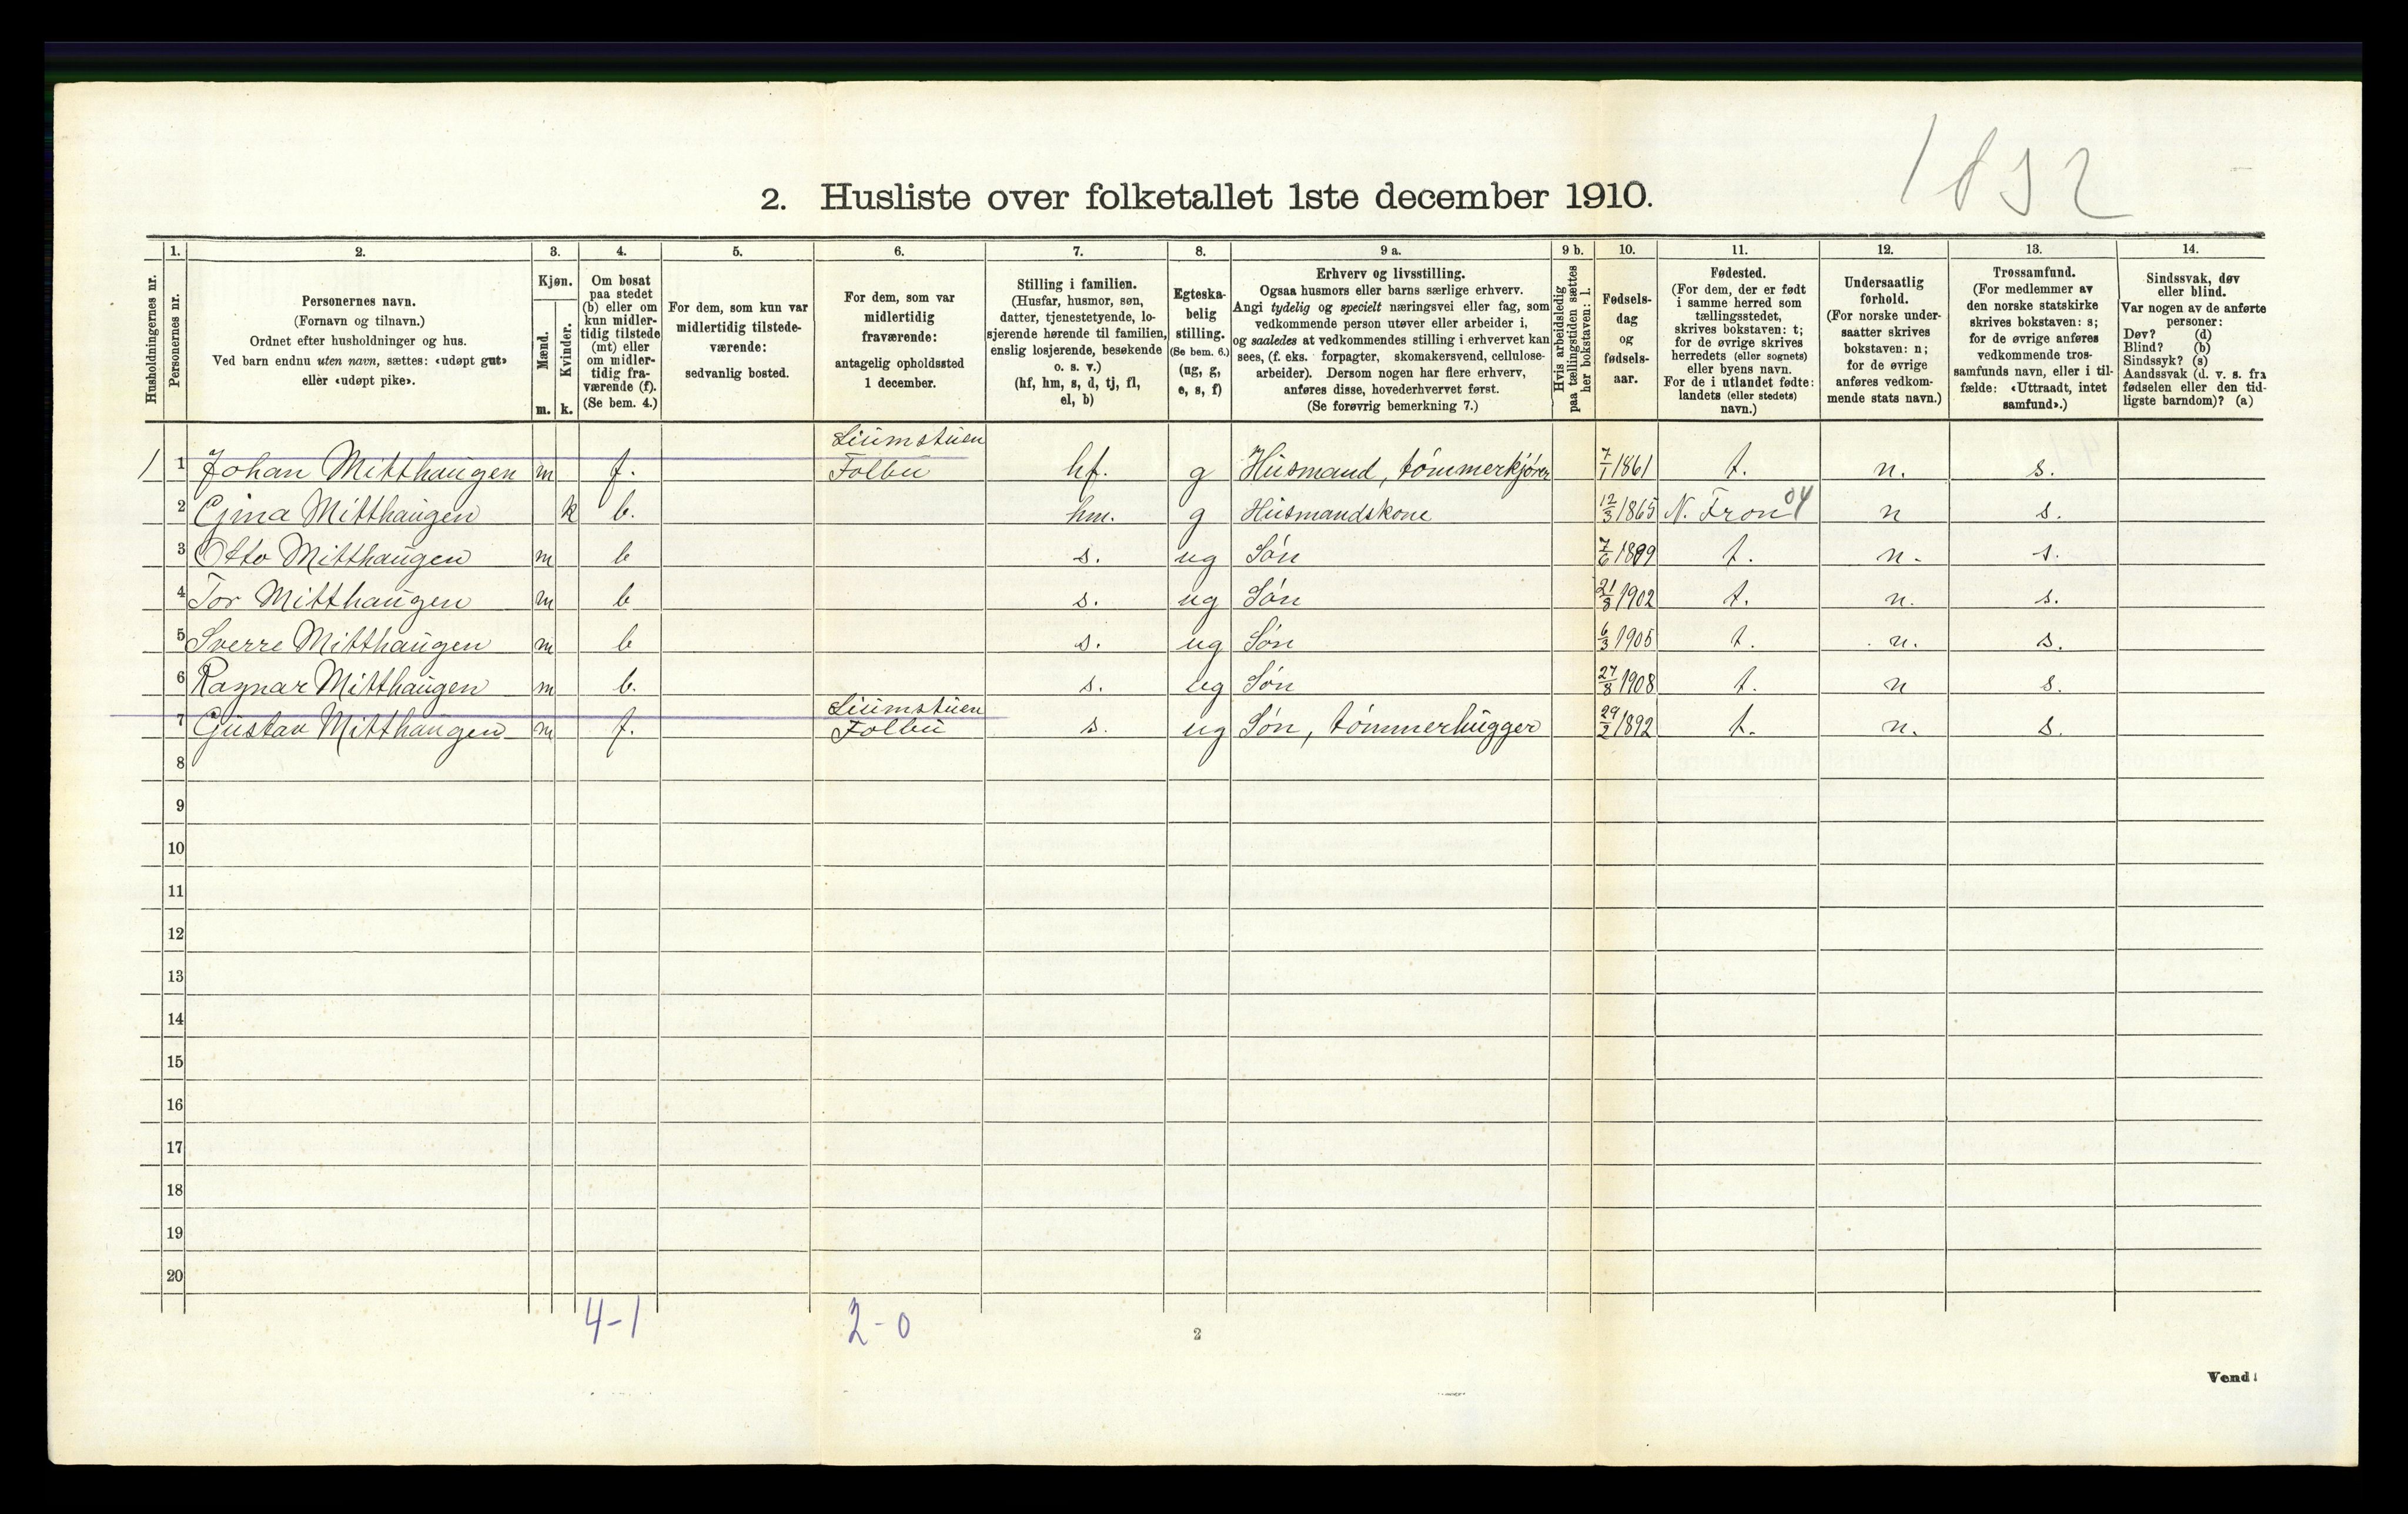 1832
2. Husliste over folketallet 1ste december 1910.
1. 2. 3. 4. 5. 6. 7. 8. 9 a. 9 b. 10. 11. 12. 13. 14.
Husholdningernes nr.
Personernes nr.
Personernes navn.
(Fornavn og tilnavn.)
Ordnet efter husholdninger og hus.
Ved barn endnu uten navn, sættes: «udøpt gut»
eller «udøpt pike».
Kjøn.
Mænd.
Kvinder.
m. k.
Om bosat
paa stedet
(b) eller om
kun midler-
tidig tilstede
(mt) eller
om midler-
tidig fra-
værende (f).
(Se bem. 4.)
For dem, som kun var
midlertidig tilstede-
værende:
sedvanlig bosted.
For dem, som var
midlertidig
fraværende:
antagelig opholdssted
1 december.
Stilling i familien.
(Husfar, husmor, søn,
datter, tjenestetyende, lo-
sjerende hørende til familien,
enslig losjerende, besøkende
o. s. v.)
(hf, hm, s, d, tj, fl,
el, b)
Egteska-
belig
stilling.
(Se bem. 6.)
(ug, g,
e, s, f)
Erhverv og livsstilling.
Ogsaa husmors eller barns særlige erhverv.
Angi tydelig og specielt næringsvei eller fag, som
vedkommende person utøver eller arbeider i,
og saaledes at vedkommendes stilling i erhvervet kan
sees, (f. eks. forpagter, skomakersvend, cellulose-
arbeider). Dersom nogen har flere erhverv,
anføres disse, hovederhvervet først.
(Se forøvrig bemerkning 7.)
Hvis arbeidsledig
paa tællingstiden sættes
her bokstaven: l.
Fødsels-
dag
og
fødsels-
aar.
Fødested.
(For dem, der er født
i samme herred som
tællingsstedet,
skrives bokstaven: t;
for de øvrige skrives
herredets (eller sognets)
eller byens navn.
For de i utlandet fødte:
landets (eller stedets)
navn.)
Undersaatlig
forhold.
(For norske under-
saatter skrives
bokstaven: n;
for de øvrige
anføres vedkom-
mende stats navn.)
Trossamfund.
(For medlemmer av
den norske statskirke
skrives bokstaven: s;
for de øvrige anføres
vedkommende tros-
samfunds navn, eller i til-
fælde: «Uttraadt, intet
samfund».)
Sindssvak, døv
eller blind.
Var nogen av de anførte
personer:
Døv? (d)
Blind? (b)
Sindssyk? (s)
Aandssvak (d. v. s. fra
fødselen eller den tid-
ligste barndom)? (a)
Liumstuen
1 1 Johan Mitthaugen m f. Folbu hf. g Husmand, tømmerkjører 7/1 1861 t. n. s.
2 Gina Mitthaugen k b. hm. g Husmandskone 12/3 1865 N. Fron 04 n s.
3 Otto Mitthaugen m b s. ug Søn 7/6 1899 t. n. s.
4 Tor Mitthaugen m b s. ug Søn 21/8 1902 t. n. s.
5 Sverre Mitthaugen m b s. ug Søn 6/3 1905 t. n. s.
6 Ragnar Mitthaugen m b. s. ug Søn 27/8 1908 t. n s.
Liumstuen
7 Gustav Mitthaugen m f. Folbu s. ug Søn, tømmerhugger 29/2 1892 t. n. s.
8
9
10
11
12
13
14
15
16
17
18
19
20
4-1 2-0
2
Vend!